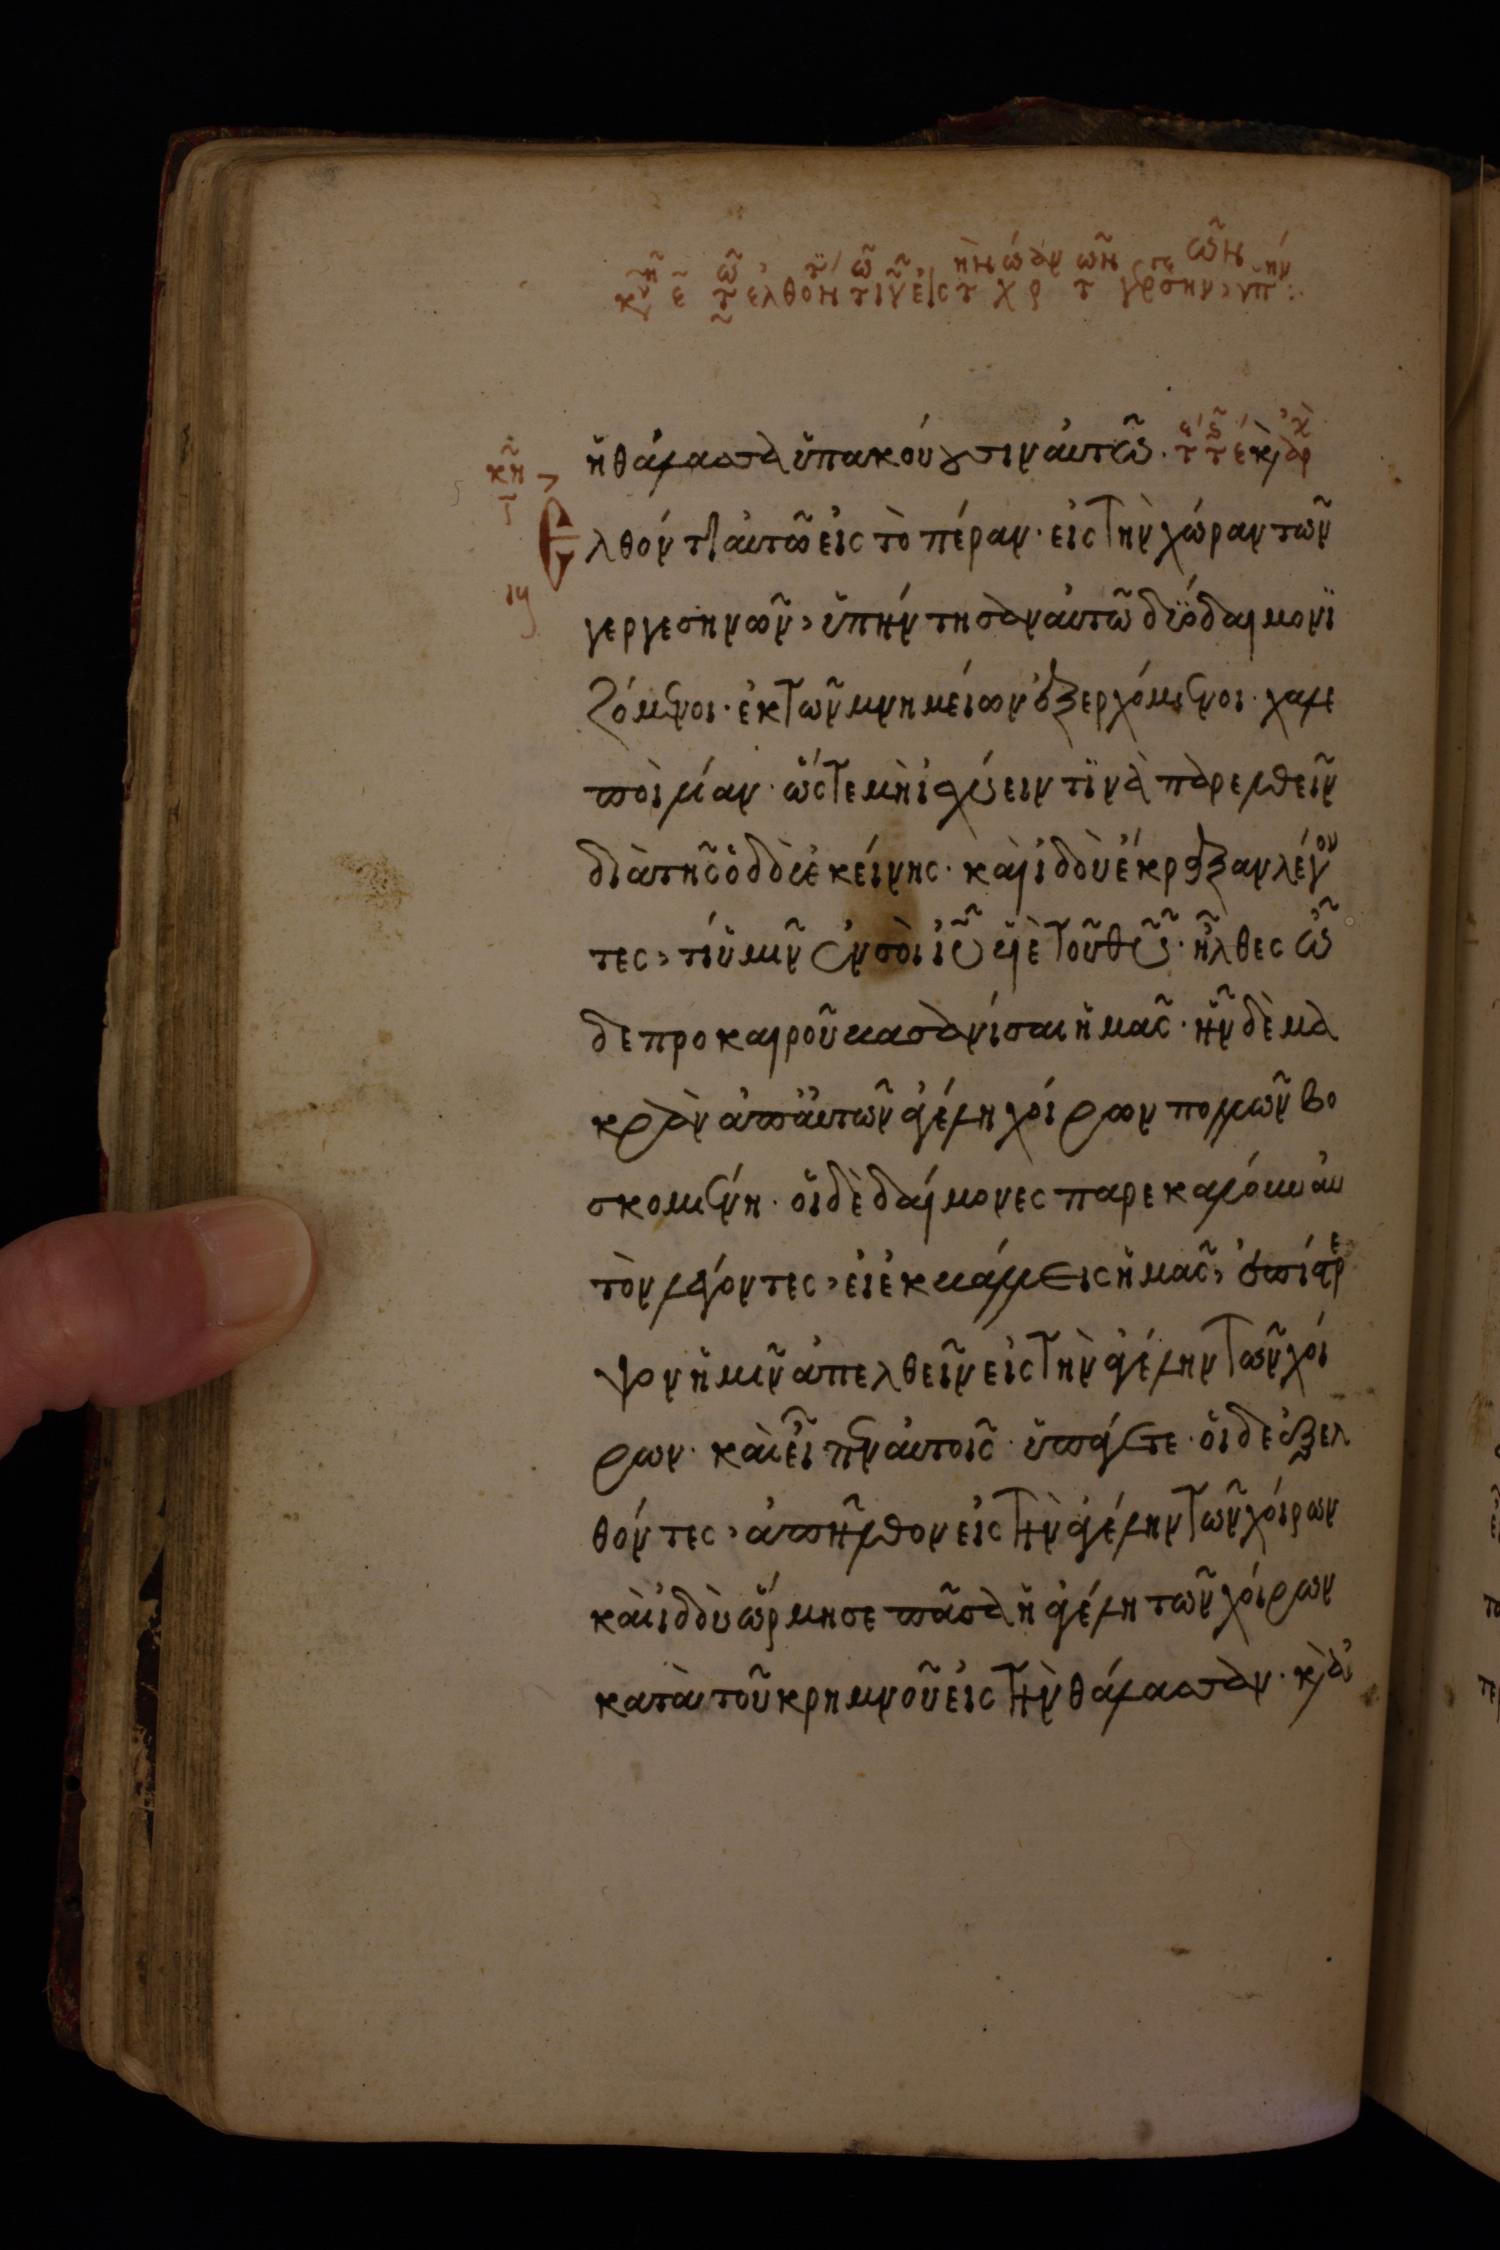 ἡ θάλασσα ὑπακούουσιν αὐτῶ·
ἐλθόντι αὐτῶ εἰς τὸ πέραν· εἰς τὴν χώραν τῶν
γεργεσηνῶν, ὑπήντησαν αὐτῶ δύο δαιμονι
ζόμενοι· ἐκ τῶν μνημείων ἐξερχόμενοι· χαλε
ποὶ λίαν· ὥστε μὴ ἰσχύειν τινὰ παρελθεῖν
διὰ τῆς ὁδοῦ ἐκείνης· καὶ ἰδοὺ ἔκραξαν λέγον
τες, τί ἡμῖν καὶ σοὶ ἰῦ υἱὲ τοῦ θῦ· ἦλθες ὧ
δε προ καιροῦ βασανίσαι ἡμᾶς· ἦν δὲ μα
κρὰν ἀπ αὐτῶν ἀγέλη χοίρων πολλῶν βο
σκομένη· οἱ δὲ δαίμονες παρεκάλουν αὐ
τὸν λέγοντες, εἰ ἐκβάλλεις ἡμᾶς, ἐπίτρε
ψον ἡμῖν ἀπελθεῖν εἰς τὴν ἀγέλην τῶν χοί
ρων· καὶ εἶπεν αὐτοῖς· ὑπάγετε· οἱ δὲ ἐξελ
θόντες, ἀπῆλθον εἰς τὴν ἀγέλην τῶν χοίρων
καὶ ἰδοὺ ὥρμησε πᾶσα ἡ ἀγέλη τῶν χοίρων
κατὰ τοῦ κρημνοῦ εἰς τὴν θάλασσαν·